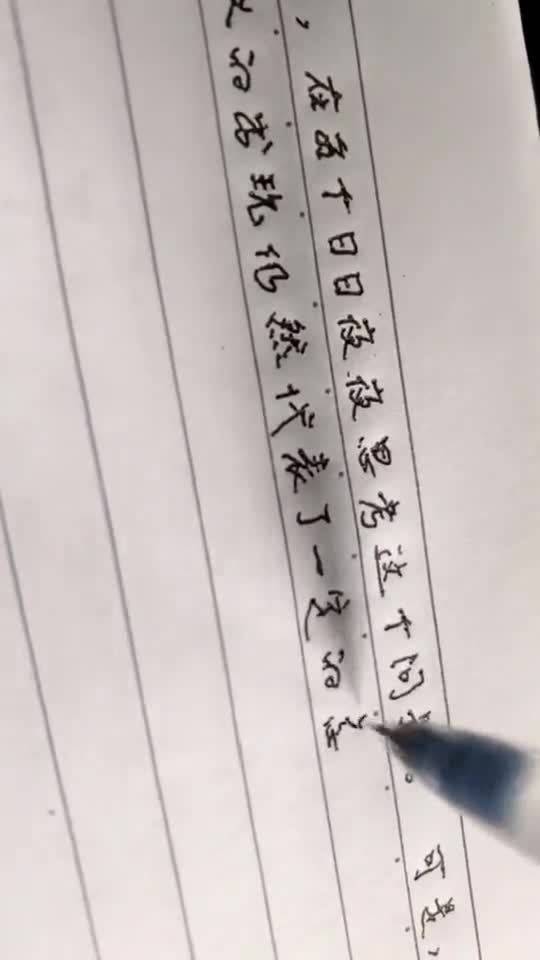 ，在每个日日夜夜思考这个问题。可是，
的发现仍然代表了一定的